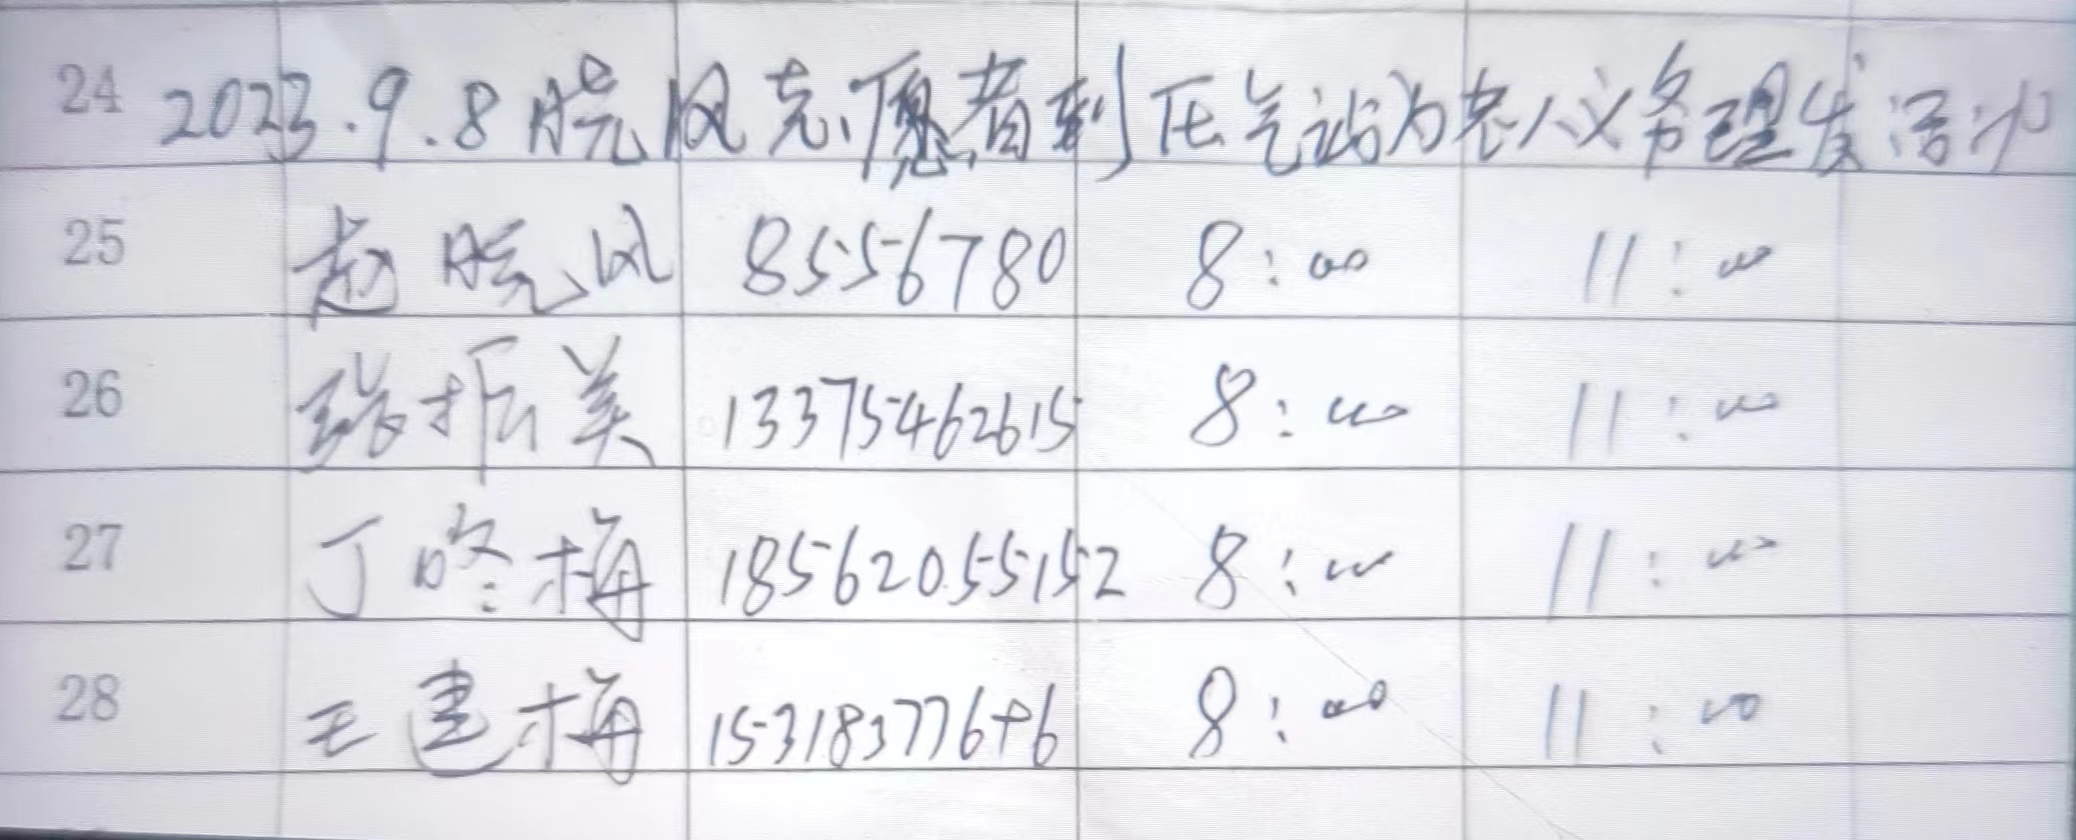 24 2023.9.8晓风志愿者到压气站为老人义务理发活动
25 赵晓风 8556780 8:00 11:00
26 张振美 13375462615 8:00 11:00
27 丁咚梅 18562055152 8:00 11:00
28 王建梅 153183776 6 8:00 11:00